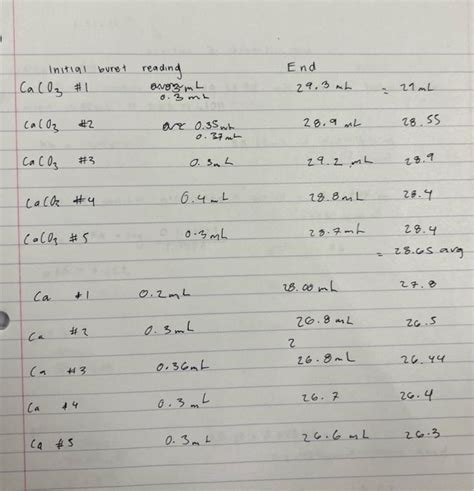 Initial buret reading End
CaCO3 #1 0.3 mL 29.3 mL = 29 mL
CaCO3 #2 0.35 mL 28.9 mL 28.55
0.37 mL
CaCO3 #3 0.3 mL 29.2 mL 28.9
CaCO3 #4 0.4 mL 28.8 mL 28.4
CaCO3 #5 0.3 mL 28.7 mL 28.4
= 28.65 avg
Ca #1 0.2 mL 28.00 mL 27.8
Ca #2 0.3 mL 26.8 mL 26.5
2
Ca #3 0.36 mL 26.8 mL 26.44
Ca #4 0.3 mL 26.7 26.4
Ca #5 0.3 mL 26.6 mL 26.3